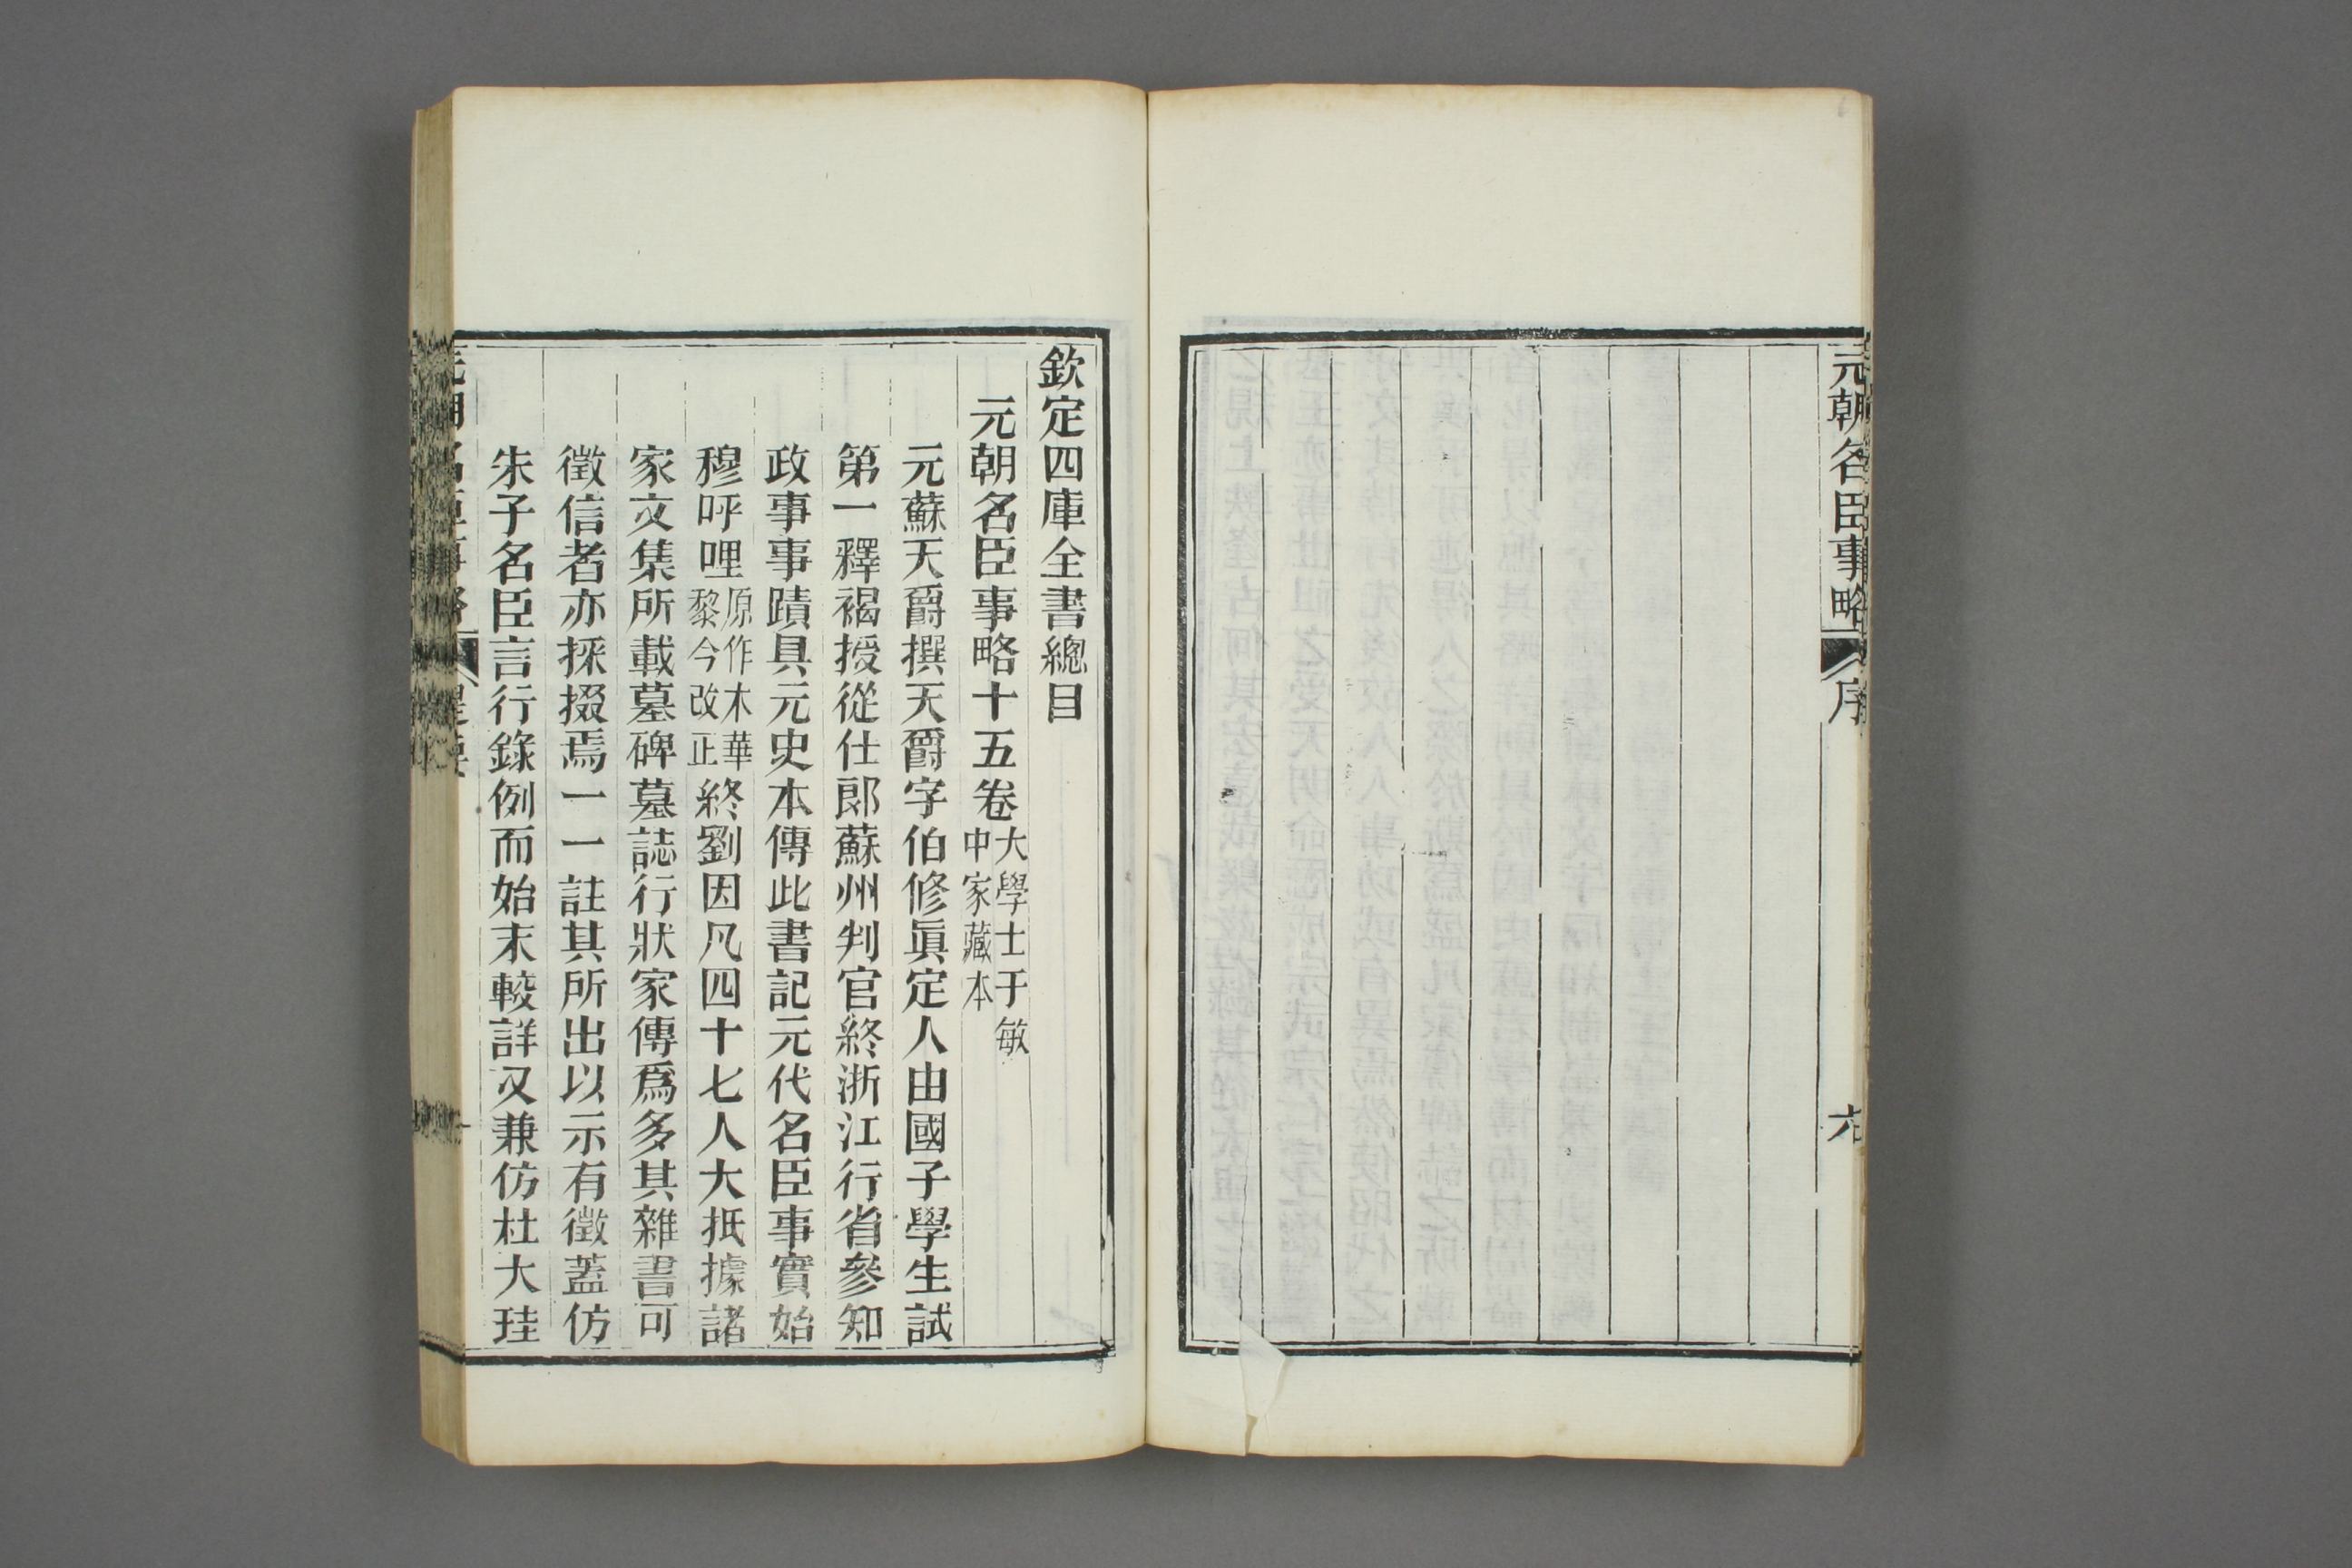 元朝名臣事略
序
六
欽定四庫全書總目
元朝名臣事略十五卷大學士于敏
中家藏本
元蘇天爵撰天爵字伯修眞定人由國子學生試
第一釋褐授從仕郎蘇州判官終浙江行省參知
政事事蹟具元史本傳此書記元代名臣事實始
穆呼哩原作木華
黎今改正終劉因凡四十七人大抵據諸
家文集所載墓碑墓誌行狀家傳爲多其雜書可
徵信者亦採掇焉一一註其所出以示有徵蓋仿
朱子名臣言行錄例而始末較詳又兼仿杜大珪
元朝名臣事略
提要
一